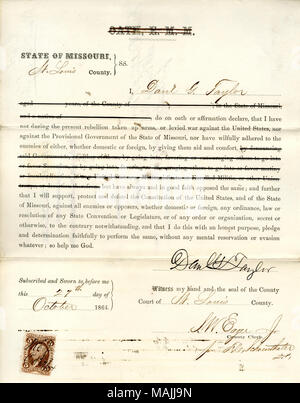 OATH, E. M. M.
STATE OF MISSOURI,
St. Louis County. } SS.
I, Danl G. Taylor
aged years, of the County of in the State of Missouri,
do on oath or affirmation declare, that I
have not during the present rebellion taken up arms, or levied war against the United States, nor
against the Provisional Government of the State of Missouri, nor have wilfully adhered to the
enemies of either, whether domestic or foreign, by giving them aid and comfort,
but have always and in good faith opposed the same; and further
that I will support, protect and defend the Constitution of the United States, and of the State
of Missouri, against all enemies or opposers, whether domestic or foreign, any ordinance, law or
resolution of any State Convention or Legislature, or of any order or organization, secret or
otherwise, to the contrary notwithstanding, and that I do this with an honest purpose, pledge
and determination faithfully to perform the same, without any mental reservation or evasion
whatever; so help me God.
Danl G Taylor
Subscribed and Sworn to before me
this 27th day of
October 1864.
Witness my hand and the seal of the County
Court of St. Louis County.
County Clerk.
alamy
Image ID: MAJJ9N
www.alamy.com